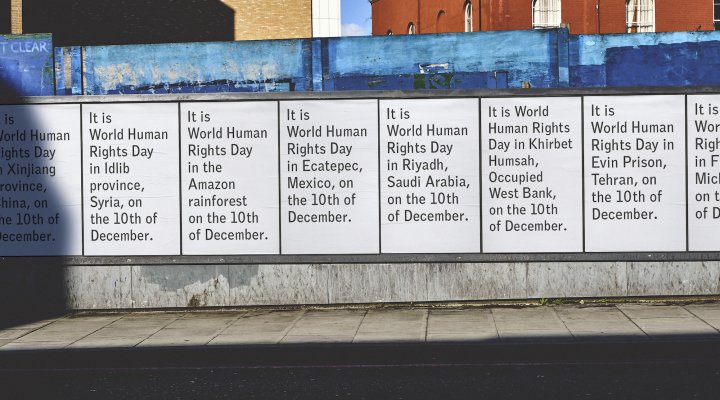 T CLEAR
is
World Human
Rights Day
Xinjiang
Province,
China, on
the 10th of
December.
It is
World Human
Rights Day
in Idlib
province,
Syria, on
the 10th of
December.
It is
World Human
Rights Day
in the
Amazon
rainforest
on the 10th
of December.
It is
World Human
Rights Day
in Ecatepec,
Mexico, on
the 10th of
December.
It is
World Human
Rights Day
in Riyadh,
Saudi Arabia,
on the 10th
of December.
It is World
Human Rights
Day in Khirbet
Humsah,
Occupied
West Bank,
on the 10th
of December.
It is
World Human
Rights Day in
Evin Prison,
Tehran, on
the 10th of
December.
It is
Worl
Righ
in F
Mich
on t
of D